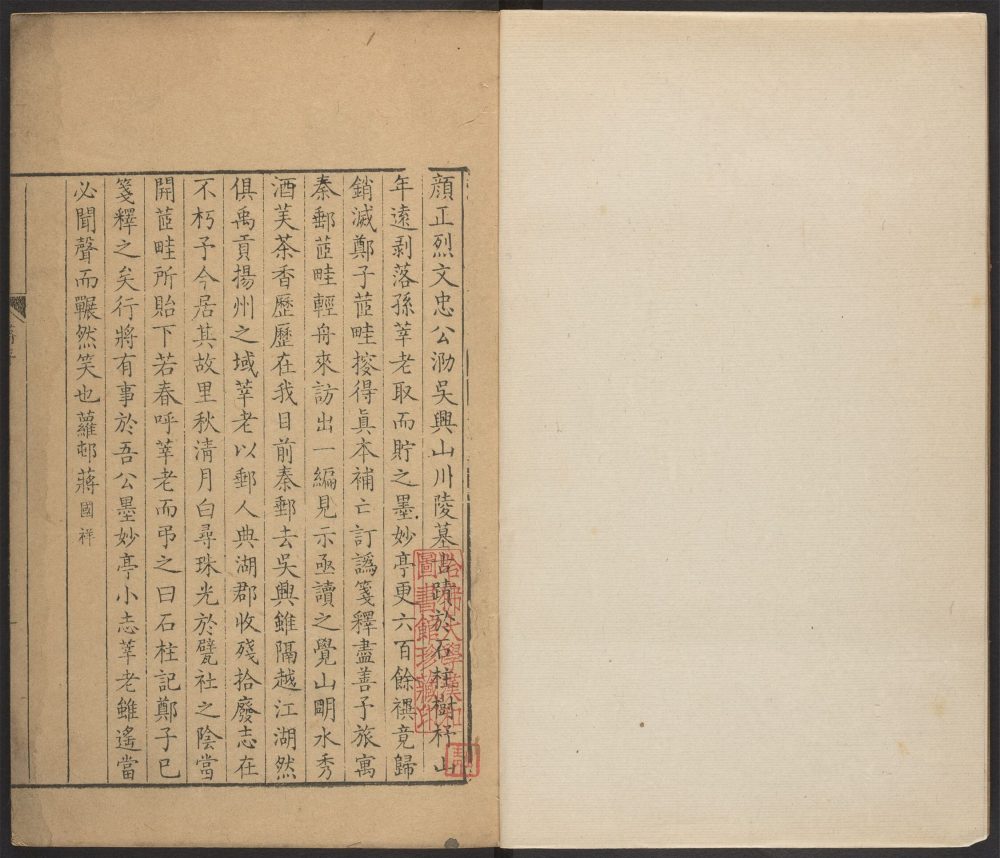 顔正烈文忠公泐吳興山川陵墓古蹟於石柱樹杼山
年遠剥落孫莘老取而貯之墨妙亭更六百餘禩竟歸
銷滅鄭子芷畦搜得眞本補亡訂譌箋釋盡善予旅寓
秦郵芷畦輕舟來訪出一編見示亟讀之覺山明水秀
酒芙茶香歷歷在我目前秦郵去吳興雖隔越江湖然
俱禹貢揚州之域莘老以郵人典湖郡收殘拾廢志在
不朽予今居其故里秋清月白尋珠光於甓社之陰當
開芷畦所貽下若春呼莘老而弔之曰石柱記鄭子已
箋釋之矣行將有事於吾公墨妙亭小志莘老雖遙當
必聞聲而囅然笑也蘿邨蔣國祥
哈佛大學漢和
圖書館珍藏印